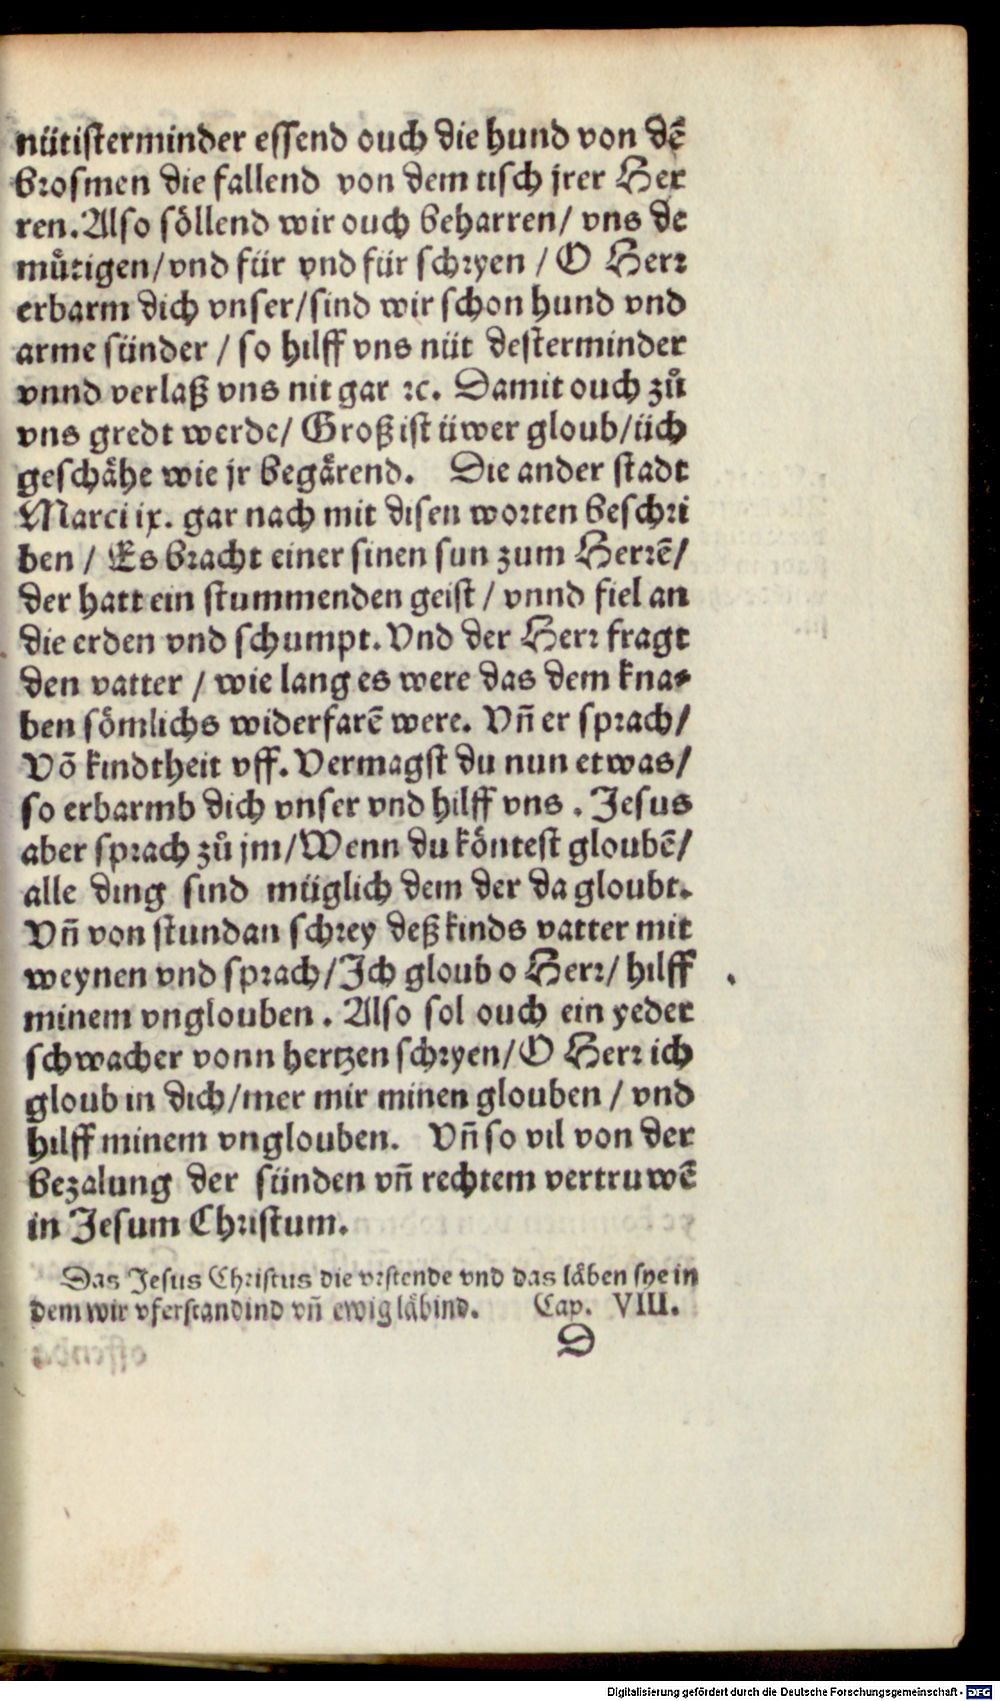 nütisterminder essend ouch die hund von dē
brosmen die fallend von dem tisch jrer Her
ren. Also söllend wir ouch beharren/ vns de
muͤtigen/ vnd für vnd für schryen / O Herr
erbarm dich vnser/ sind wir schon hund vnd
arme sünder / so hilff vns nüt desterminder
vnnd verlaß vns nit gar ꝛc. Damit ouch zuͦ
vns gredt werde/ Groß ist üwer gloub/ üch
geschaͤhe wie jr begaͤrend. Die ander stadt
Marci ix. gar nach mit disen worten beschri
ben / Es bracht einer sinen sun zum Herrē/
der hatt ein stummenden geist / vnnd fiel an
die erden vnd schumpt. Vnd der Herr fragt
den vatter / wie lang es were das dem kna⸗
ben sömlichs widerfarē were. Vn̄ er sprach/
Vō kindtheit vff. Vermagst du nun etwas/
so erbarmb dich vnser vnd hilff vns. Jesus
aber sprach zuͦ jm/ Wenn du köntest gloubē/
alle ding sind müglich dem der da gloubt.
Vn̄ von stundan schrey deß kinds vatter mit
weynen vnd sprach/ Ich gloub o Herr/ hilff
minem vnglouben. Also sol ouch ein yeder
schwacher vonn hertzen schryen/ O Herr ich
gloub in dich/ mer mir minen glouben / vnd
hilff minem vnglouben. Vn̄ so vil von der
bezalung der sünden vn̄ rechtem vertruwē
in Jesum Christum.
Das Jesus Christus die vrstende vnd das laͤben sye in
dem wir vferstandind vn̄ ewig laͤbind. Cap. VIII.
D
Digitalisierung gefördert durch die Deutsche Forschungsgemeinschaft - DFG